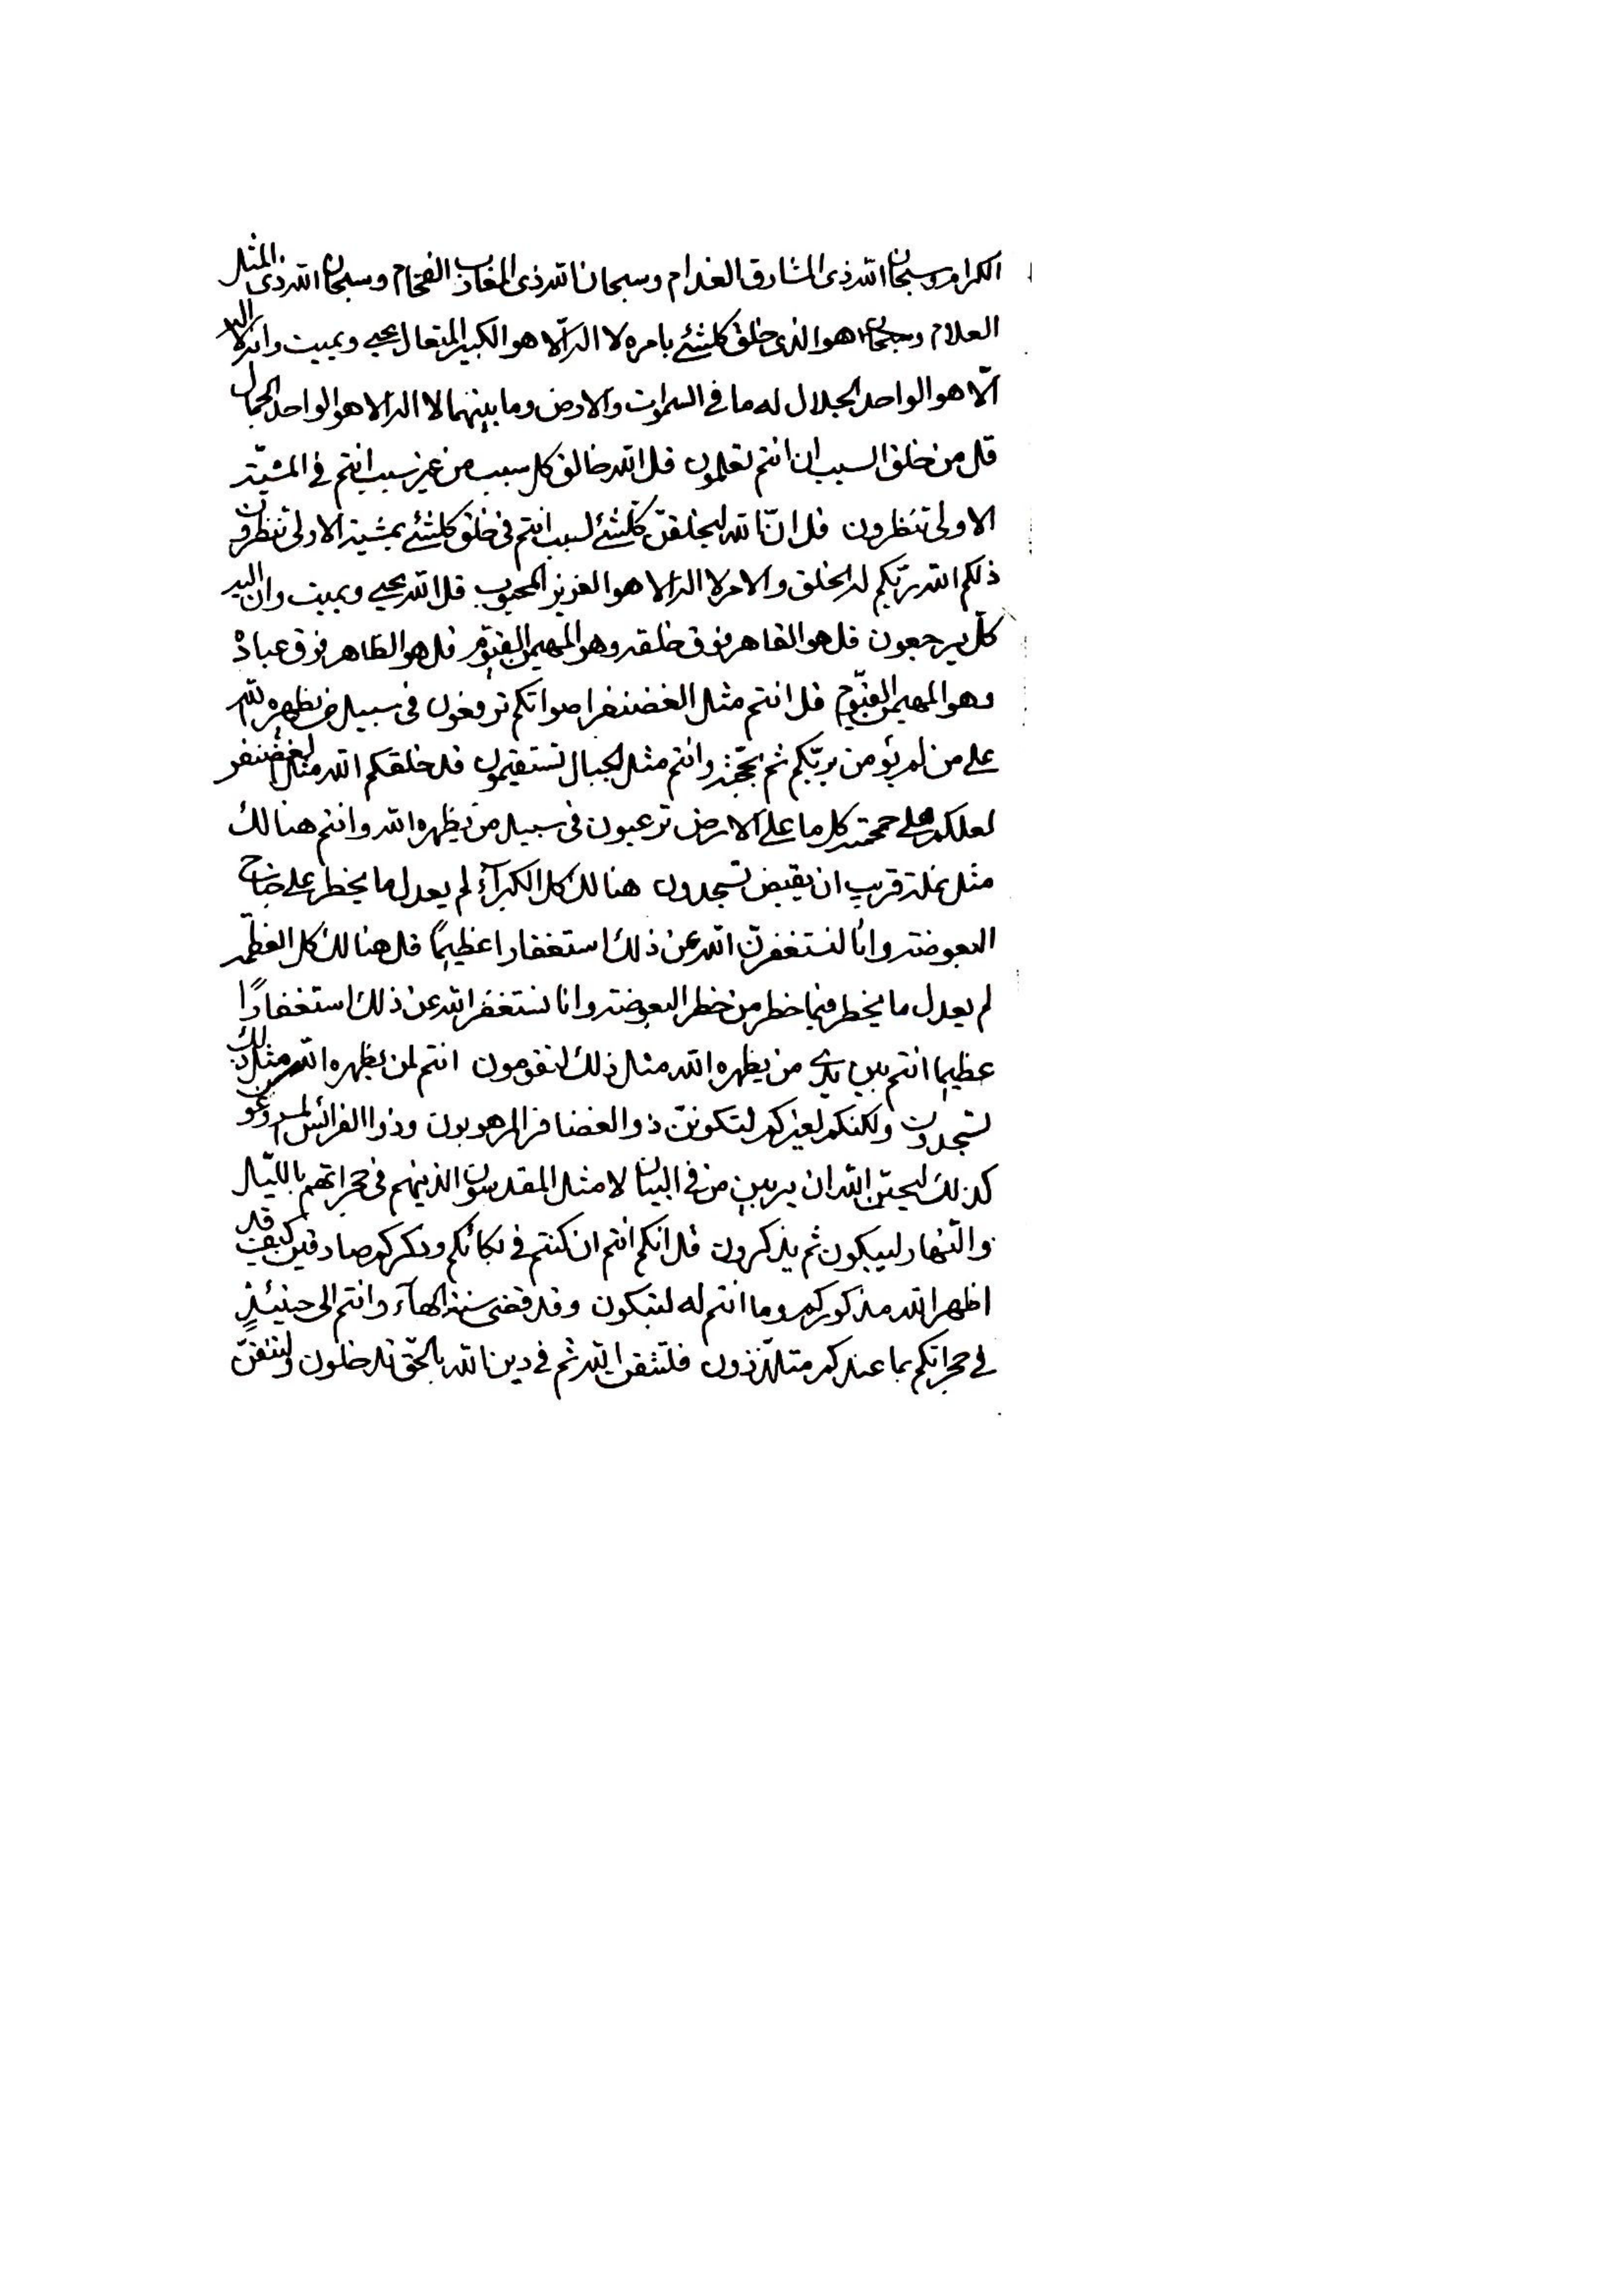 الكرام وسبحان الله ذى المشارق العدام وسبحان الله ذى المغارب الفخام وسبحان الله ذى المثل
العلام وسبحان هو الذى خلق كلشئ بامره لا اله الا هو الكبير المتعال يحيى ويميت وانه لا اله
الا هو الواحد الجلال له ما فى السموات والارض وما بينهما لا اله الا هو الواحد الجمال
قل من خلق السبب ان انتم تعلمون قل الله خالق كل سبب من غير سبب انتم فى المشيّة
الاولى تنظرون قل انّ الله ليخلقنّ كلشئ لسبب انتم فى خلق كلشئ بمشية الاولى تنظرون
ذلكم الله ربّكم له الخلق والامر لا اله الا هو العزيز المحبوب قل الله يحيى ويميت وان اليه
كلّ يرجعون قل هو القاهر فوق خلقه وهو المهيمن القيّوم قل هو الظاهر فوق عباده
وهو المهيمن القيّوم قل انتم مثل الغضنفر اصواتكم ترفعون فى سبيل من يظهره الله
على من لم يؤمن بربّكم ثم بحججه وانتم مثل الجبال تستقيمون قل خلقكم الله مثل الغضنفر
لعلكم كل ما على الارض ترعبون فى سبيل من يظهره الله وانتم هنالك
مثل نملة قريب ان يقبض تسجدون هنالك كل الكبرآء لم يعدل ما يخطر على جناح
البعوضة وانا لنستغفرنّ الله عن ذلك استغفارا عظيمًا قل هنالك كل العظمة
لم يعدل ما يخطر فيما خطر من خطر البعوضة وانا نستغفر الله عن ذلك استغفارًا
عظيما انتم بين يدى من يظهره الله مثل ذلك لتقومون انتم لمن يظهره الله مثل ذلك
تسجدون ولكنكم لغيركم لتكوننّ ذو الغضافر المرهوبون وذوا الفرائس
كذلك ليحبّنّ الله ان يربين من فى البيان لا مثل المقدسون الذينهم فى حجراتهم بالليال
والنّهار ليبكون ثم يذكرون قل انكم انتم ان كنتم فى بكائكم وذكركم صادقين كيف قد
اظهر الله مذكوركم وما انتم له لتبكون وقد قضى سنة الهآء وانتم الى حينئذٍ
فى حجراتكم بما عندكم متلذّذون فلتتقن الله ثم فى دين الله بالحقّ تدخلون ولتتقنّ